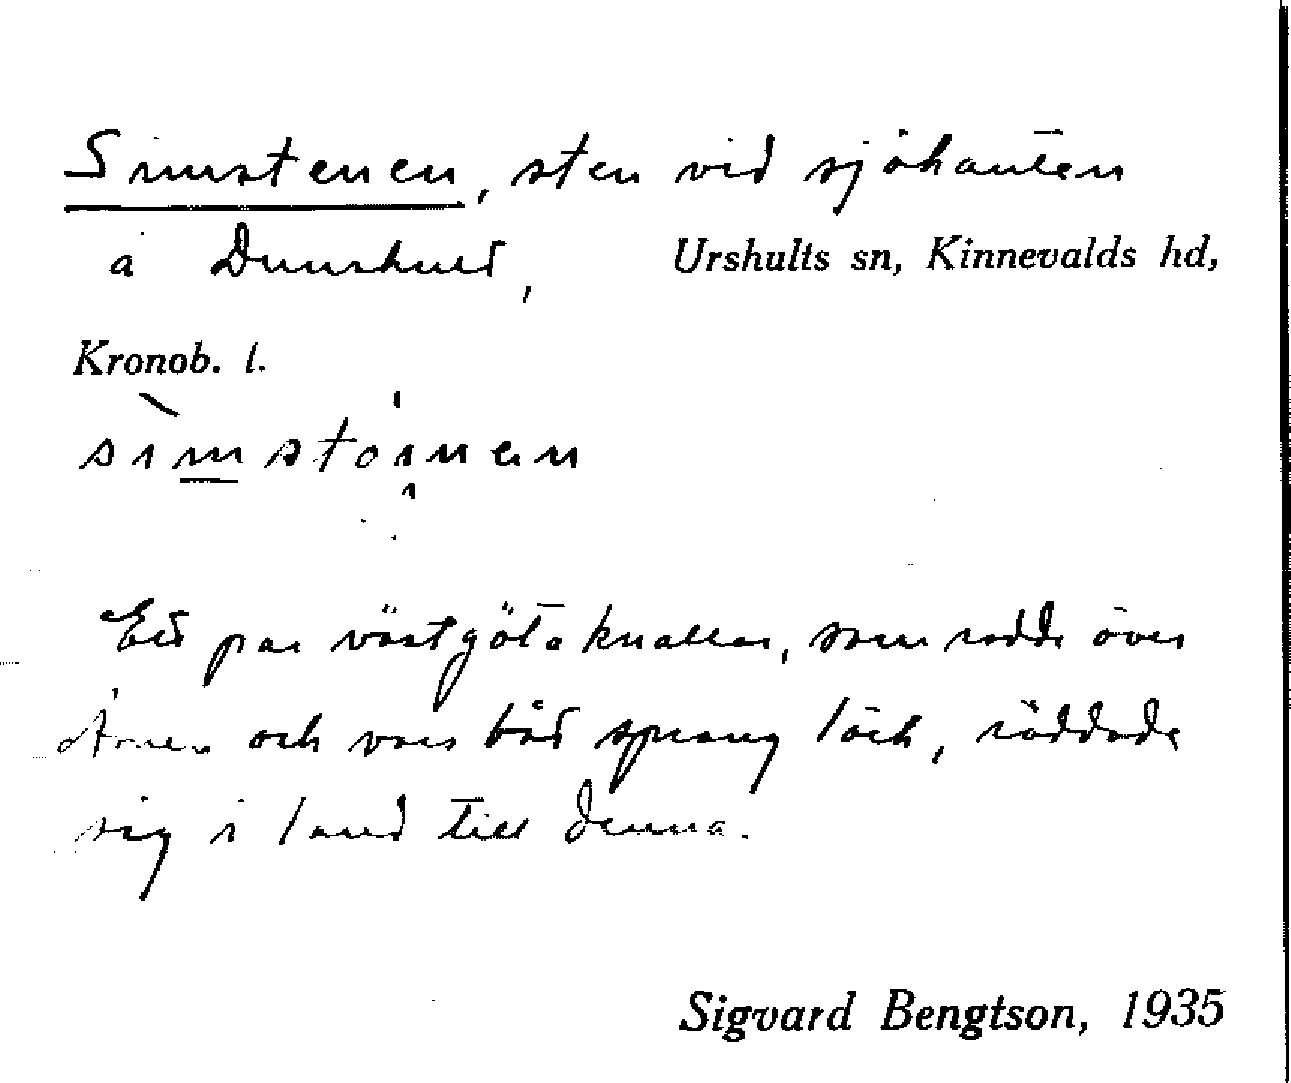 Simstenen, sten vid sjökanten
å Dunshult, Urshults sn, Kinnevalds hd,
Kronob. l.
sìmstöinen
Ett par västgötaknallar, som rodde över
Åsnen och vars båt sprang läck, räddade
sig i land till denna.
Sigvard Bengtson, 1935